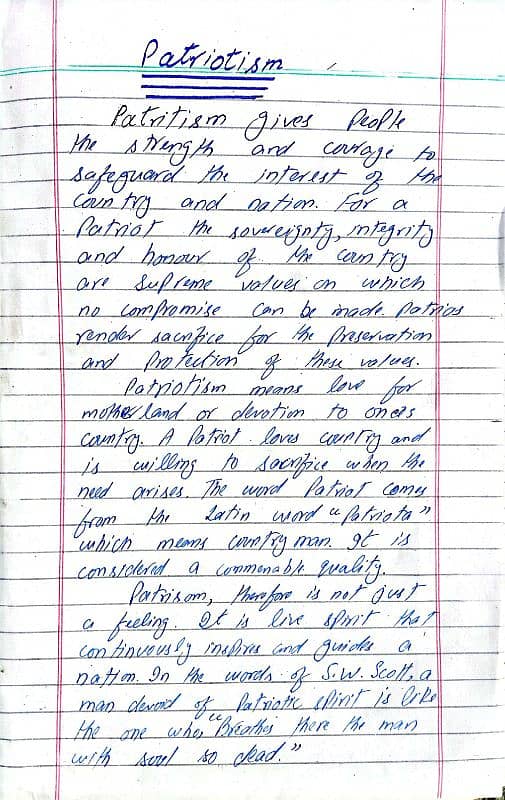 Patriotism
Patritism gives People
the strength and courage to
safeguard the interest of the
country and nation. For a
Patriot the sovereignty, integrity
and honour of the country
are supreme values on which
no compromise can be made. Patrios
render sacrifice for the Preservation
and Protection of these values.
Patriotism means love for
motherland or devotion to ones
country. A Patriot loves country and
is willing to sacrifice when the
need arises. The word Patriot comes
from the Latin word "Patriota"
which means countryman. It is
considered a commenable quality.
Patrisom, therefore is not just
a feeling. It is live spirit that
continuously inspires and guides a
nation. In the words of S.W. Scott, a
man devoid of Patriotic spirit is like
the one who "Breathes there the man
with soul so dead."